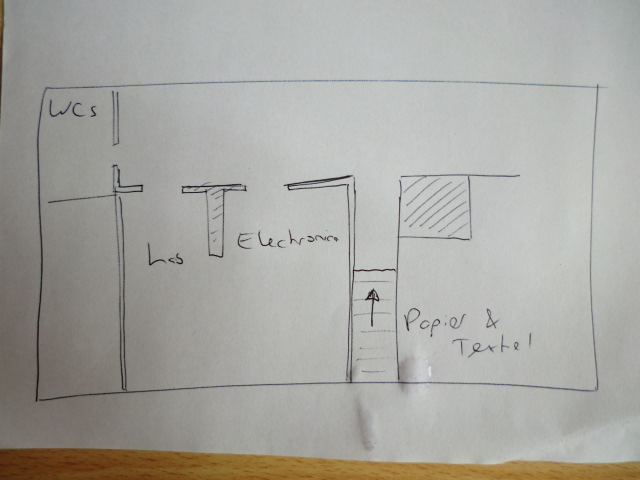 WCs
Las
Electronica
Papier &
Textel